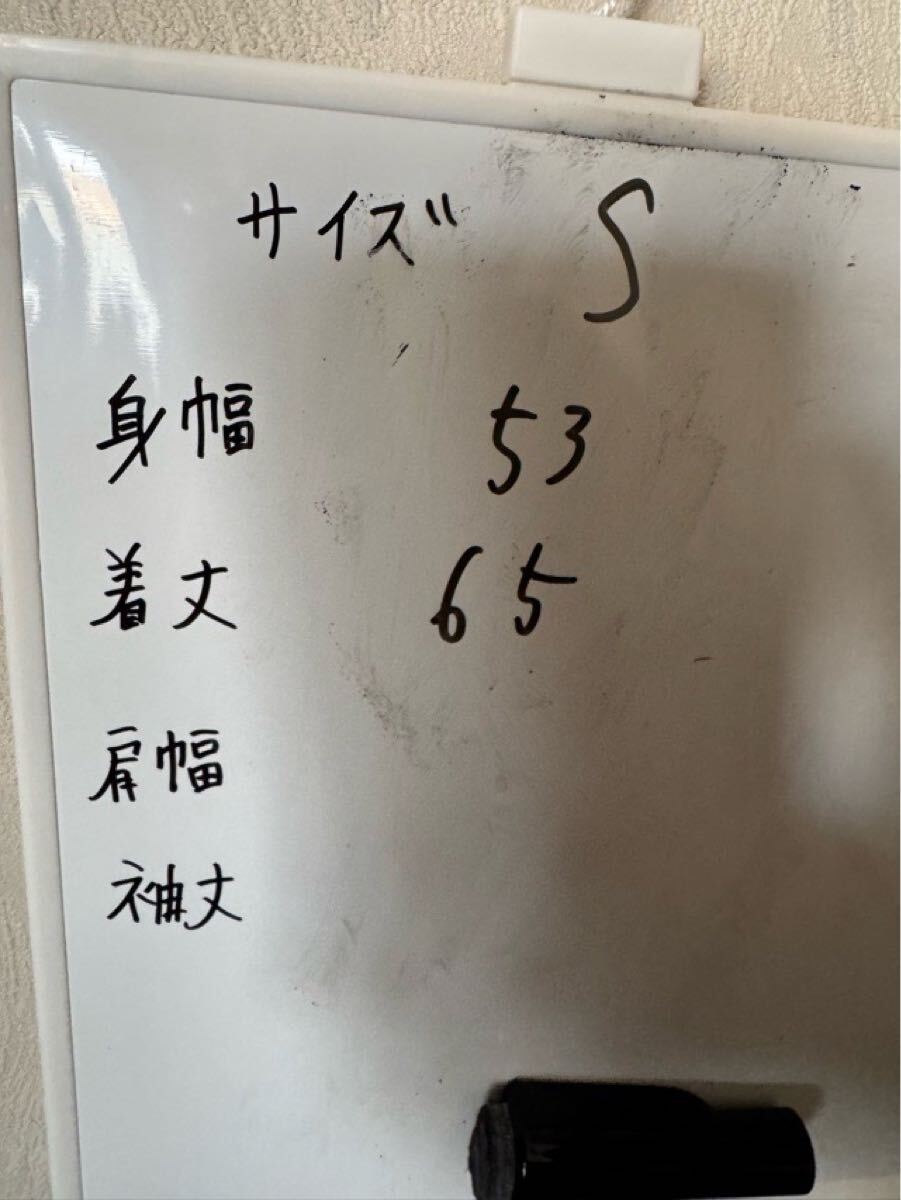 サイズ S
身幅 53
着丈 65
肩幅
袖丈